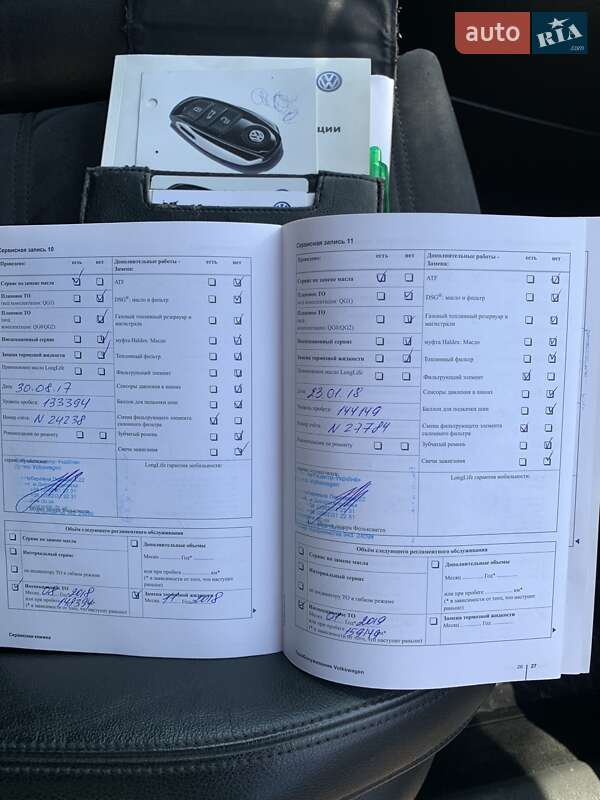 auto RIA
.com
ции
Сервисная запись 10
Проведено: есть нет
Дополнительные работы -
Замена:
есть нет
Сервис по замене масла
ATF
Плановое ТО
DSG®: масло и фильтр
Топливный фильтр
муфта Haldex: Масло
Инспекционный сервис
Замена тормозной жидкости
Применяемое масло LongLife
Фильтрующий элемент
Дата 30.08.17
Сенсоры давления в шинах
Уровень пробега: 133394
Баллон для подкачки шин
Номер счёта: N 24238
Смена фильтрующего элемента
салонного фильтра
Рекомендации по ремонту
Зубчатый ремень
Свечи зажигания
LongLife гарантия мобильности:
Объём следующего регламентного обслуживания
Сервис по замене масла
Дополнительные объемы
Интервальный сервис
Месяц Год*
или при пробеге км*
(* в зависимости от того, что наступит
раньше)
по индикатору ТО в гибком режиме
Инспекционное ТО
Месяц 08 Год* 2018
или при пробеге 148394
(* в зависимости от того, что наступит раньше)
Замена тормозной жидкости
Месяц 11 Год 2018
Сервисная книжка
Сервисная запись 11
Проведено: есть нет
Дополнительные работы -
Замена:
есть нет
Сервис по замене масла
ATF
Плановое ТО
(код комплектации: QG1)
DSG®: масло и фильтр
Плановое ТО
(код
комплектации: QG0/QG2)
Газовый топливный резервуар и
магистрали
муфта Haldex: Масло
Инспекционный сервис
Топливный фильтр
Замена тормозной жидкости
Применяемое масло LongLife
Фильтрующий элемент
Дата 23.01.18
Сенсоры давления в шинах
Уровень пробега: 144149
Баллон для подкачки шин
Номер счёта: N 27784
Смена фильтрующего элемента
салонного фильтра
Рекомендации по ремонту
Зубчатый ремень
Свечи зажигания
LongLife гарантия мобильности:
Объём следующего регламентного обслуживания
Сервис по замене масла
Дополнительные объемы
Интервальный сервис
Месяц Год*
или при пробеге км*
(* в зависимости от того, что наступит
раньше)
по индикатору ТО в гибком режиме
Инспекционное ТО
Месяц 01 Год* 2019
или при пробеге 159149
(* в зависимости от того, что наступит раньше)
Замена тормозной жидкости
Месяц Год
Volkswagen
26 27